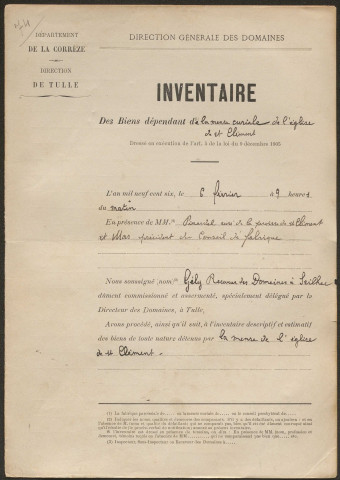 DÉPARTEMENT
DE LA CORRÈZE
DIRECTION
DE TULLE
DIRECTION GÉNÉRALE DES DOMAINES
INVENTAIRE
Des Biens dépendant de la mense curiale de l'église
de St Clément
Dressé en exécution de l'art. 3 de la loi du 9 décembre 1905
L'an mil neuf cent six, le 6 février à 9 heures
du matin
En présence de MM. curé de la paroisse de St Clément
et Mas président du Conseil de fabrique
Nous soussigné (nom) Gély Receveur des Domaines à Seilhac
dûment commissionné et assermenté, spécialement délégué par le
Directeur des Domaines, à Tulle,
Avons procédé, ainsi qu'il suit, à l'inventaire descriptif et estimatif
des biens de toute nature détenus par la mense de l'église
de St Clément.
(1) La fabrique paroissiale de ..... la mense curiale de ..... le conseil presbytéral de .....
(3) Inspecteur, Sous-Inspecteur ou Receveur des Domaines à .....